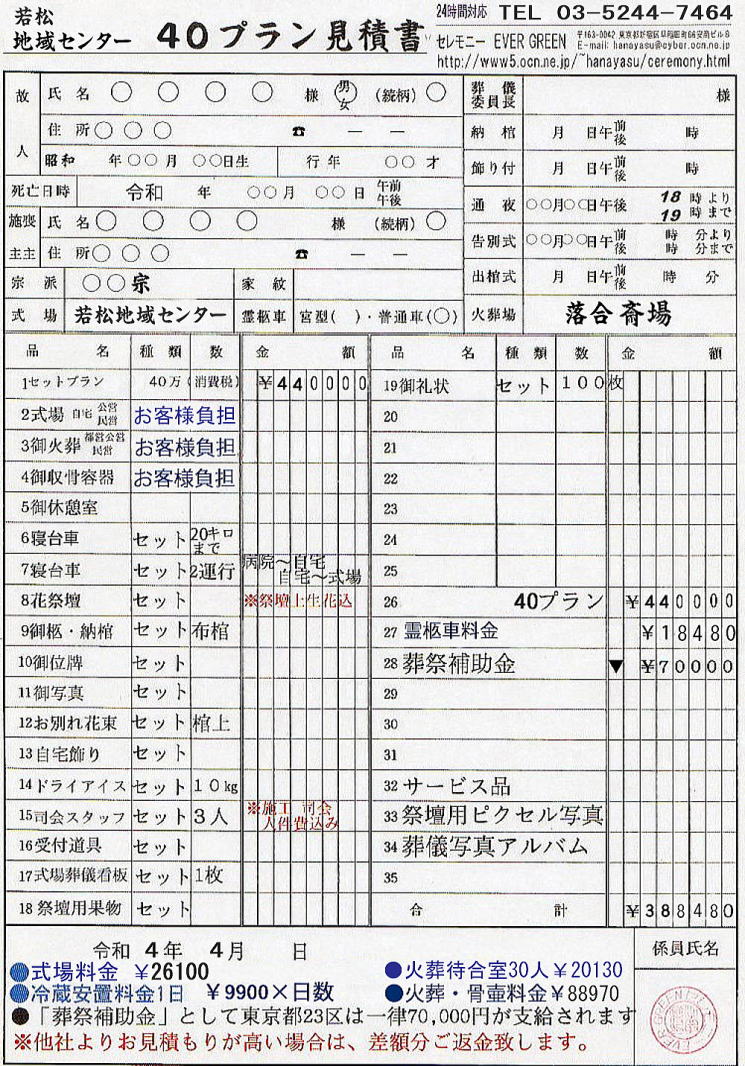 若松
地域センター 40プラン見積書
24時間対応 TEL 03-5244-7464
セレモニー EVER GREEN 〒163-0042 東京都新宿区早稲田町66安房ビル8
E-mail: hanayasu@cyber.ocn.ne.jp
http://www5.ocn.ne.jp/~hanayasu/ceremony.html
故人 氏名 ○ ○ ○ ○ 様 男女 (続柄) ○
住所 ○ ○ ○ ☎ ー ー
昭和 年○○月 ○○日生 行年 ○○才
死亡日時 令和 年 ○○月 ○○日 午前 午後
施主 喪主 氏名 ○ ○ ○ ○ 様 (続柄) ○
住所 ○ ○ ○ ☎ ー ー
宗派 ○○宗 家紋
式場 若松地域センター 霊柩車 宮型( )・普通車(○)
葬儀委員長 様
納棺 月 日午前後 時
飾り付 月 日午前後 時
通夜 ○○月○○日午後 18時より 19時まで
告別式 ○○月○○日午前後 時 分より 時 分まで
出棺式 月 日午前後 時 分
火葬場 落合斎場
品名 種類 数 金額
1セットプラン 40万(消費税) ¥440000
2式場 自宅 公営 民営 お客様負担
3御火葬 都営公営 民営 お客様負担
4御収骨容器 お客様負担
5御休憩室
6寝台車 セット 20キロまで
7寝台車 セット 2運行 病院~自宅 自宅~式場
8花祭壇 セット ※祭壇上生花込
9御柩・納棺 セット 布棺
10御位牌 セット
11御写真 セット
12お別れ花束 セット 棺上
13自宅飾り セット
14ドライアイス セット 10kg
15司会スタッフ セット 3人 ※施工 司会 人件費込み
16受付道具 セット
17式場葬儀看板 セット 1枚
18祭壇用果物 セット
品名 種類 数 金額
19御礼状 セット 100枚
20
21
22
23
24
25
26 40プラン ¥440000
27 霊柩車料金 ¥18480
28 葬祭補助金 ▼ ¥70000
29
30
31
32 サービス品
33 祭壇用ピクセル写真
34 葬儀写真アルバム
35
合計 ¥388480
令和 4年 4月 日
係員氏名
●式場料金 ¥26100 ●火葬待合室30人¥20130
●冷蔵安置料金1日 ¥9900×日数 ●火葬・骨壺料金¥88970
●「葬祭補助金」として東京都23区は一律70,000円が支給されます
※他社よりお見積もりが高い場合は、差額分ご返金致します。